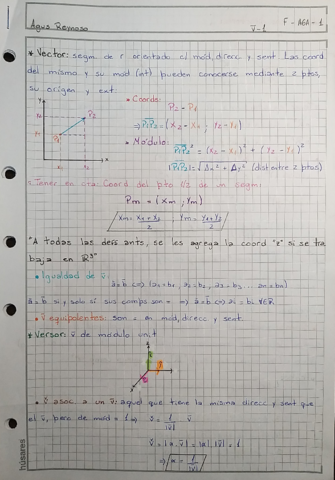 Agus Reynoso
V-1
F-AGA-1
* Vector: segm de r orientado c/ mod, direcc y sent. Las coord
del mismo y su mod (nt) pueden conocerse mediante 2 ptos,
su origen y ext.
• Coords:
P₂ - P₁
⇒ P₁P₂ = (x₂-x₁ ; y₂-y₁)
• Módulo:
P₁P₂² = (x₂-x₁)² + (y₂-y₁)²
|P₁P₂| = √Δx² + Δy² (dist entre 2 ptos)
y
P₂
P₁
x₁
x₂
x
Tener en cta: Coord del pto 1/2 de un segm:
Pm = (Xm, Ym)
Xm = x₁+x₂/2 ; Ym = y₁+y₂/2
"A todas las defs ants, se les agrega la coord "z" si se tra
baja en R³"
• Igualdad de v̄:
ā = b̄ si y solo si sus comps son =
• v̄ equipolentes: son = en mod, direcc y sent
* Versor: v̄ de modulo unit
asoc a un v̄: aquel que tiene la misma direcc y sent que
el v̄, pero de mod = 1
húsares